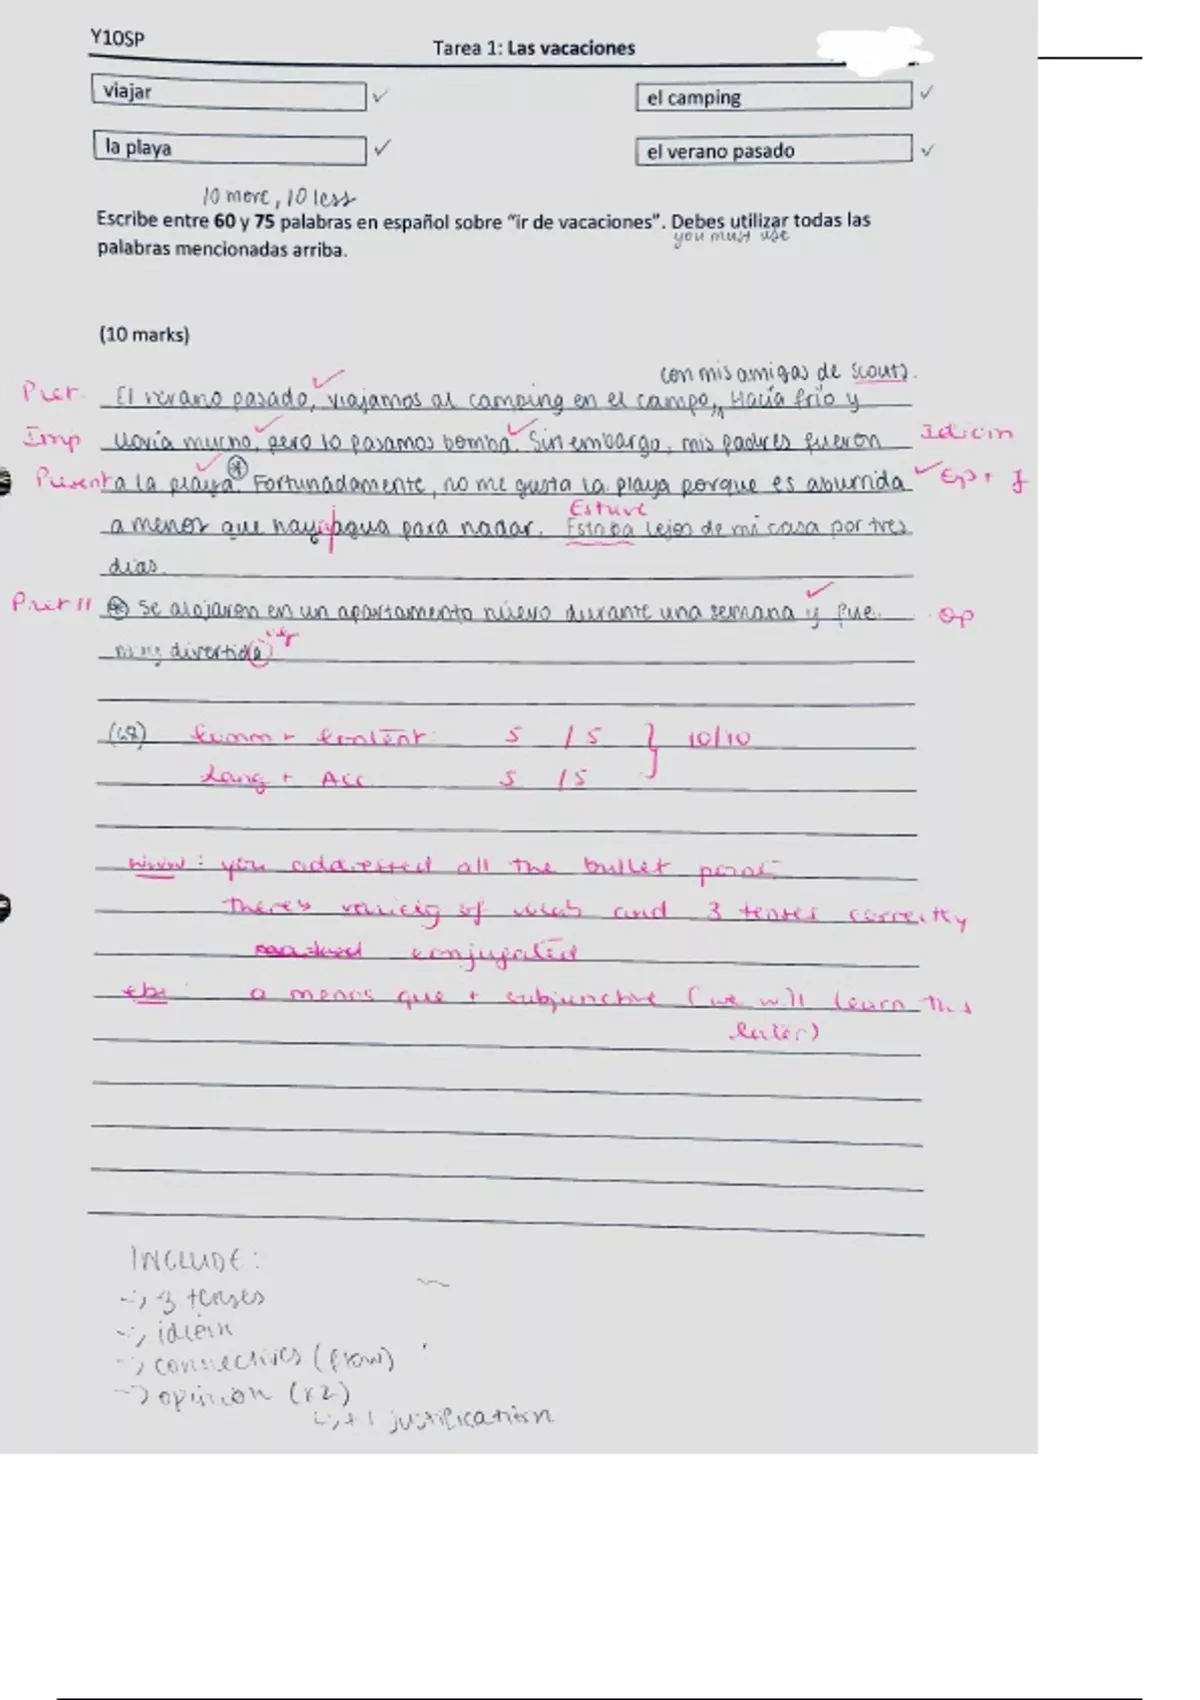 Y10SP
Tarea 1: Las vacaciones
viajar
el camping
la playa
el verano pasado
10 more, 10 less
Escribe entre 60 y 75 palabras en español sobre “ir de vacaciones”. Debes utilizar todas las
you must use
palabras mencionadas arriba.
(10 marks)
con mis amigas de scouts.
Pret. El verano pasado, viajamos al camping en el campo, Hacía frío y
Imp llovía mucho, pero lo pasamos bomba. Sin embargo, mis padres fueron Idiom
Present a la playa. Fortunadamente, no me gusta la playa porque es aburrida Op + J
Estuve
a menos que hay agua para nadar. Estaba lejos de mi casa por tres
días.
Pret II Se alojaron en un apartamento nuevo durante una semana y fue Op
muy divertida
(68) Comm + Content: 5 / 5 10/10
Lang + Acc 5 / 5
www: you addressed all the bullet
there's variety of vocab and 3 tenses correctly
conjugated
ebi: a menos que + subjunctive (we will learn this
later)
INCLUDE:
-> 3 tenses
-> idiom
-> connectives (flow)
-> opinion (x2)
↳ + 1 justification